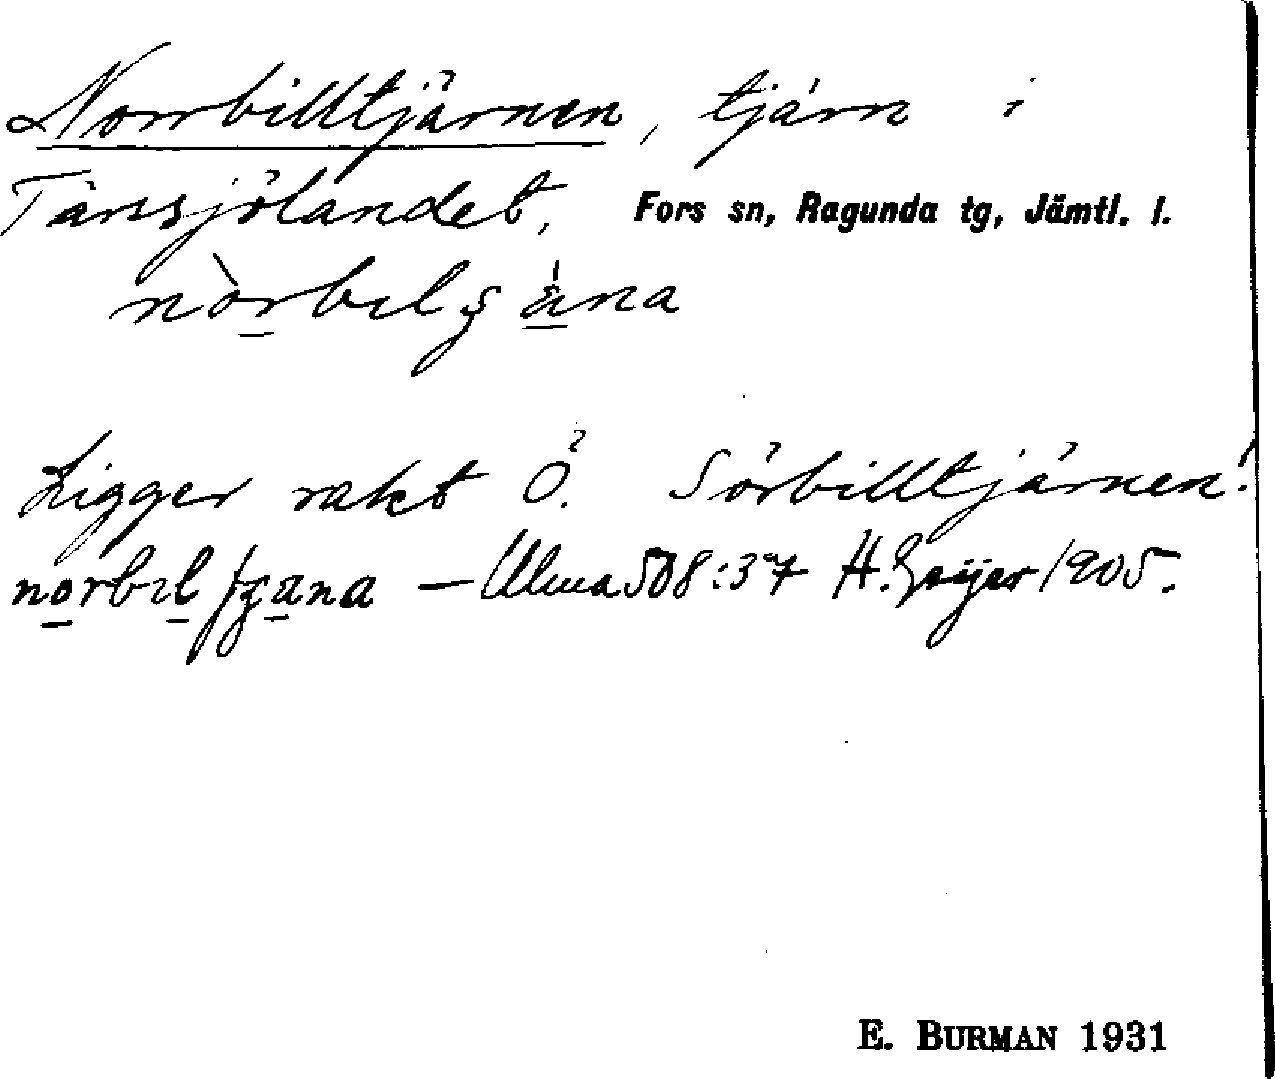 Norrbilltjärnen, tjärn i
Tänsjölandet, Fors sn, Ragunda tg, Jämtl. l.
nòrbilʂ äna
Ligger rakt Ö. Sörbilltjärnen!
norbil ʃʂäna – Ulma 508:37 H. Geijer 1905.
E. BURMAN 1931